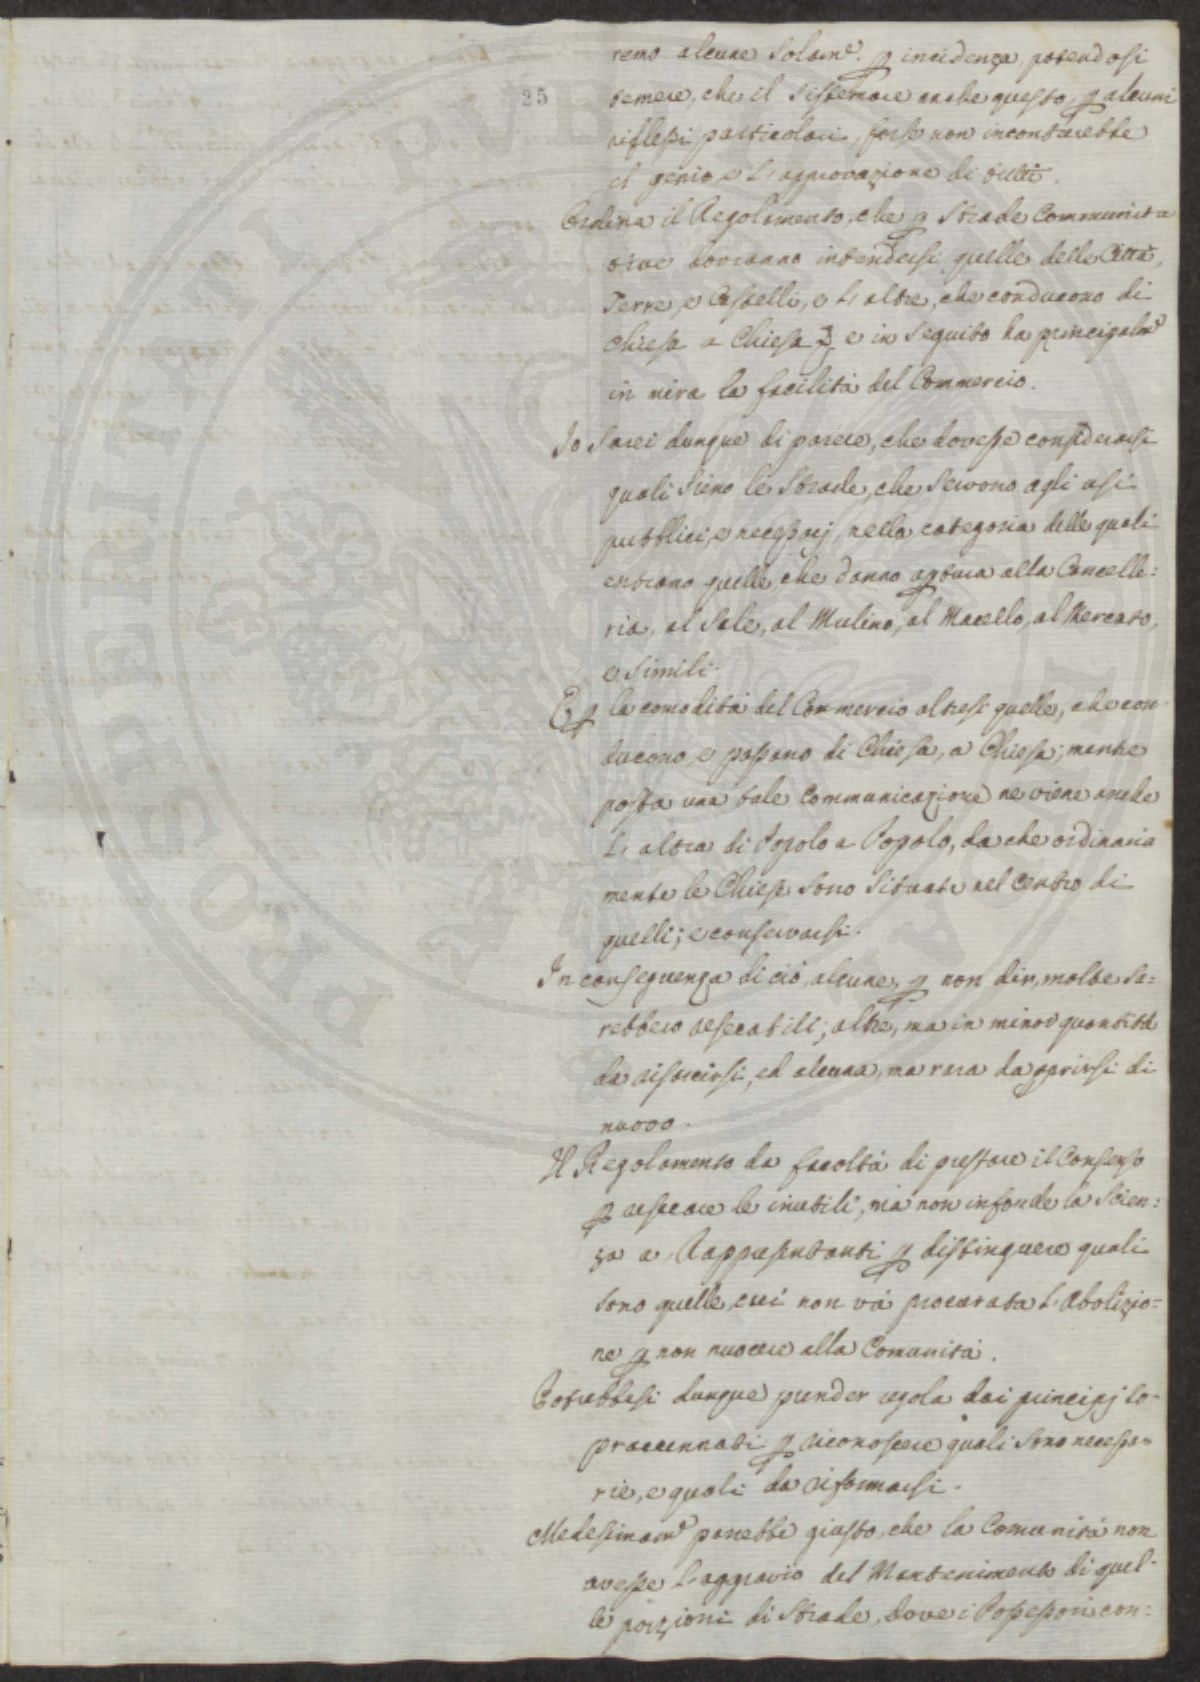 remo alcune solam.e p incidenza, potendosi
25
temere, che il sistemare anche questo, p alcuni
riflessi particolari, forse non incontrarebbe
il genio, e l'approvazione di tutti.
Ordina il Regolamento, che p Strade Communita
tive dovranno intendersi quelle delle Città,
Terre, e Castelli, e l'altre, che conducono di
Chiesa a Chiesa; e in seguito ha principalm.e
in mira la facilità del Commercio.
Io sarei dunque di parere, che dovesse considerarsi
quali sieno le Strade, che servono agli usi
pubblici, e necessarj, nella categoria delle quali
entrano quelle, che danno apertura alla Cancelle:
ria, al Sale, al Mulino, al Macello, al Mercato,
e simili.
E p la comodità del Commercio altresi quelle, che con
ducono, e passano di Chiesa, a Chiesa; mentre
posta una tale communicazione ne viene anche
l'altra di Popolo a Popolo, da che ordinaria
mente le Chiese sono situate nel centro di
quelli; e conservarsi.
In conseguenza di ciò, alcune, p non dir, molte sa:
rebbero resecabili; altre, ma in minor quantità
da risarcirsi, ed alcuna, ma rara da aprirsi di
nuovo.
Il Regolamento da facoltà di prestare il Consenso
p resecare le inutili, ma non infonde la scien:
za a' Rappresentanti p distinguere quali
sono quelle, cui non và procurata l'Abolizio:
ne p non nuocere alla Comunità.
Potrebbesi dunque prender regola dai principj so-
praccennati p riconoscere quali sono necessa-
rie, e quali da riformarsi.
Medesimam.e parrebbe giusto, che la Comunità non
avesse l'aggravio del Mantenimento di quel-
le porzioni di Strade, dove i Possessori con:
PROPRIETARI PUBBLICA